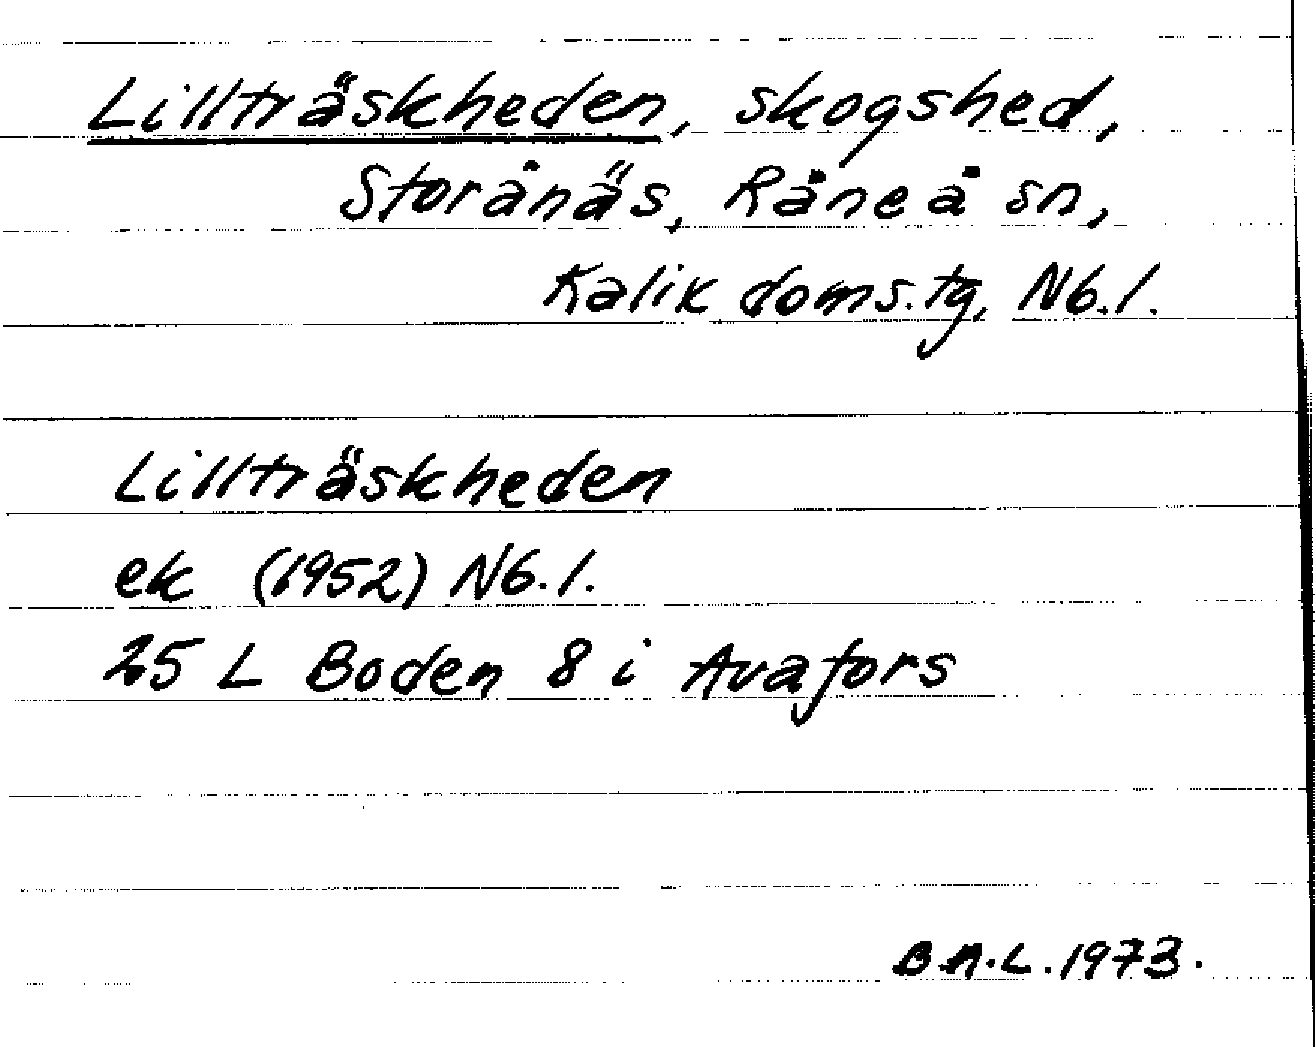 Lillträskheden, skogshed,
Storånäs, Råneå sn,
Kalix doms.tg, Nb.l.
Lillträskheden
ek (1952) Nb.l.
25 L Boden 8 i Avafors
B.A.L. 1973.